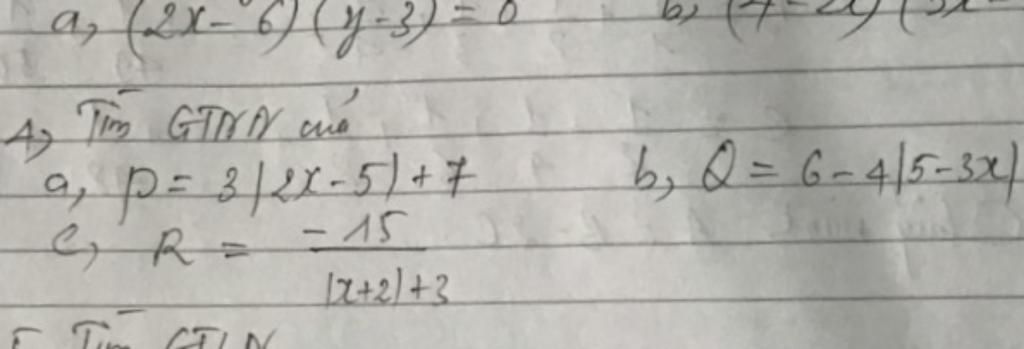 a, (2x-6)(y-3) = 0 b, (4-2x)(3x-
4, Tìm GTNN của
a, P = 3|2x-5|+7 b, Q = 6-4|5-3x|
c, R = -15 / |x+2|+3
5. Tìm GTLN